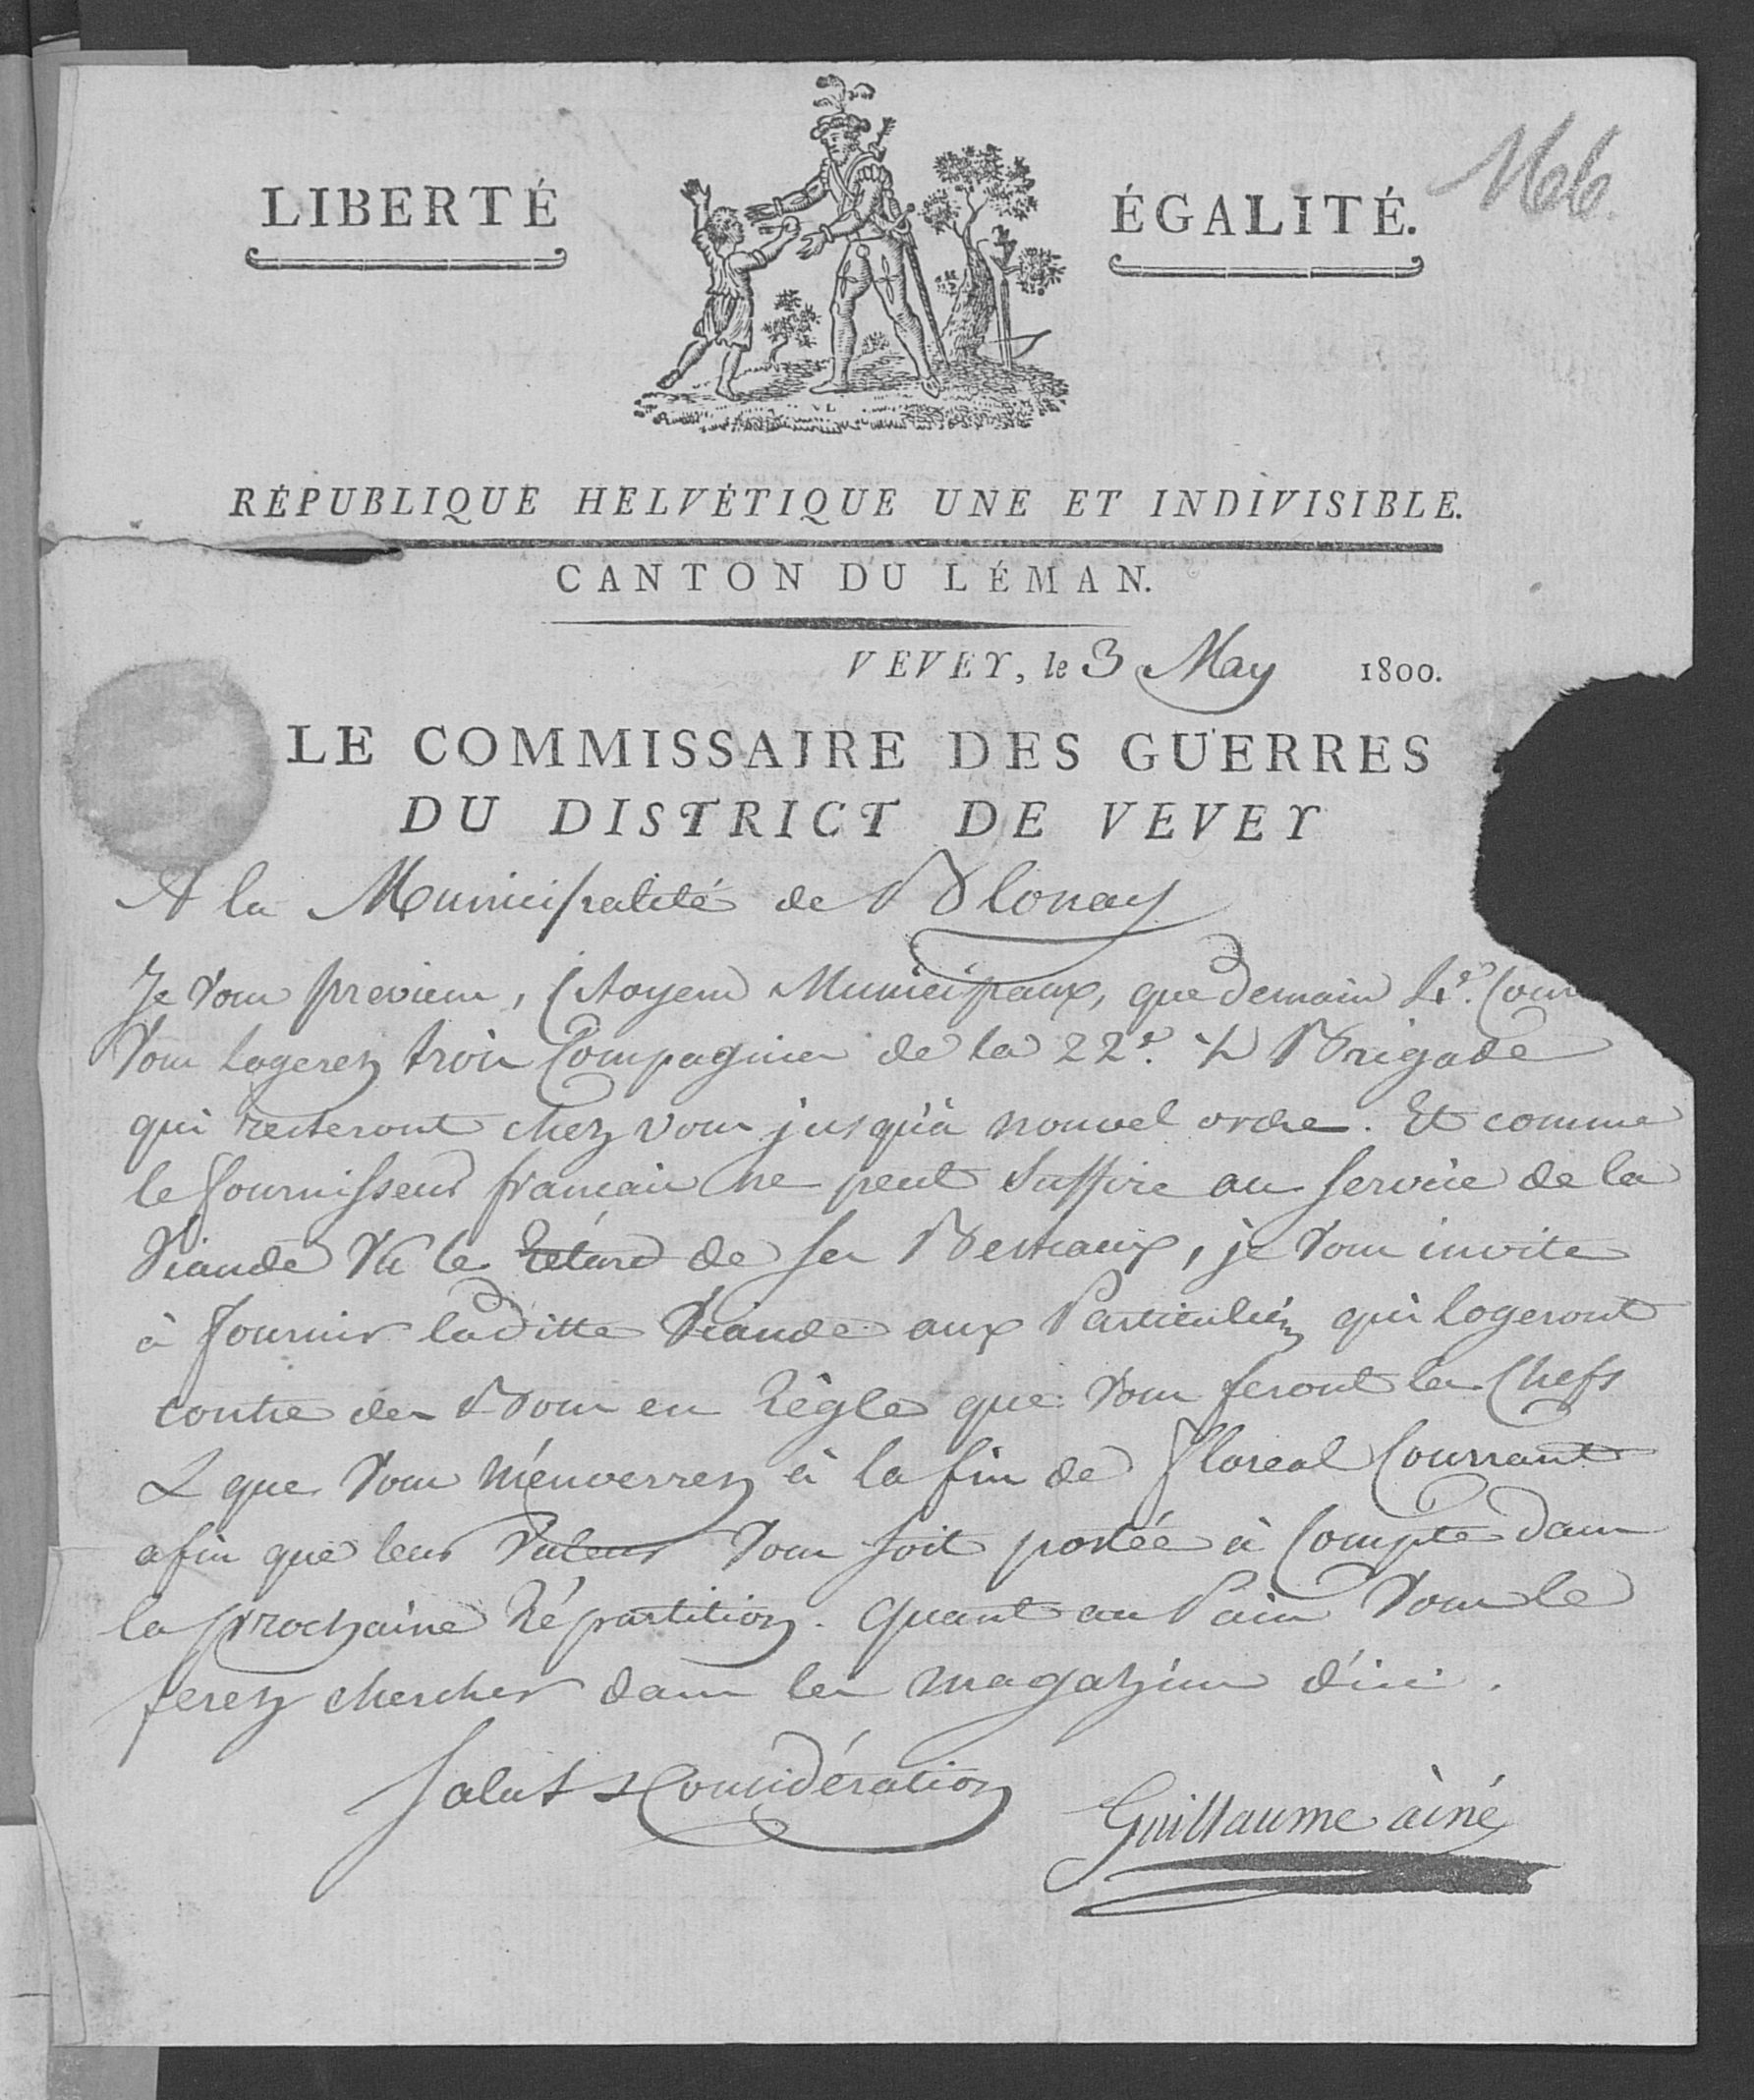 LIBERTÉ ÉGALITÉ.
RÉPUBLIQUE HELVÉTIQUE UNE ET INDIVISIBLE.
CANTON DU LÉMAN.
VEVEY, le 3 May 1800.
LE COMMISSAIRE DES GUERRES
DU DISTRICT DE VEVEY
A la Municipalité de Blonay
Je vous previens, Citoyens Municipaux, que demain 4e. Cour
vous logerez trois Compagnies de la 22e. ½ Brigade
qui resteront chez vous jusqu'à nouvel ordre. Et comme
le fournisseur francais ne peut suffire au service de la
Viande vu le Rétard de ses Bestiaux, je vous invite
à fournir laditte Viande aux Particuliérs qui logeront
contre des Bons en Règle que vous feront les Chefs
& que vous m'enverrez à la fin de floreal Courrant
afin que leur Valeur vous soit portée à Compte dans
la prochaine Répartition. quant au Pain vous le
ferez chercher dans les magazins d'ici.
Salut & Considération
Guillaume ainé